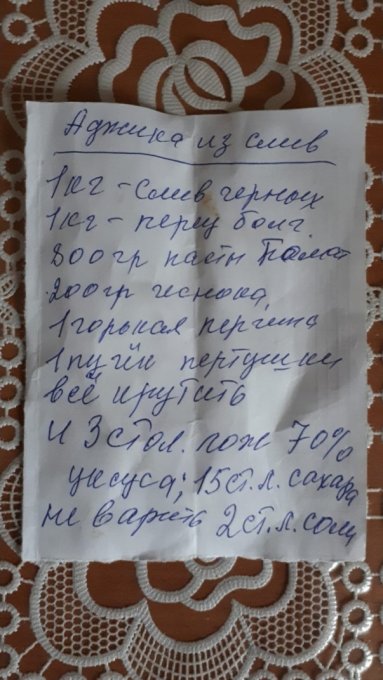 Аджика из слив
1кг - слив черных
1кг - перец болг.
800гр пасты Томат
200гр чеснока
1 горькая перчина
1 пучёк петрушки
всё крутить
и 3 стол. лож 70%
уксуса; 15 ст.л. сахара
не варить 2 ст.л. соли